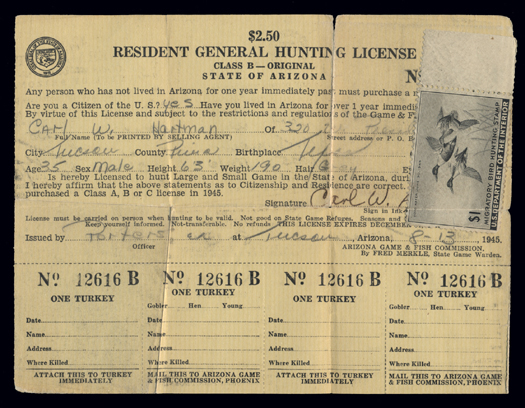 $2.50
RESIDENT GENERAL HUNTING LICENSE
CLASS B—ORIGINAL
STATE OF ARIZONA
Any person who has not lived in Arizona for one year immediately past must purchase a
Are you a Citizen of the U. S.? yes Have you lived in Arizona for over 1 year
By virtue of this License and subject to the restrictions and regulations of the Game &
Carl W. Hartman Of 320
Full Name (To be PRINTED BY SELLING AGENT) Street address or P. O.
City Tucson County Pima Birthplace
Age 55 Sex Male Height 63" Weight 190 Hair Grey
Is Hereby Licensed to hunt Large and Small Game in the State of Arizona, during
I hereby affirm that the above statements as to Citizenship and Residence are correct.
purchased a Class A, B or C license in 1945.
Signature Carl W.
Sign in Ink
License must be carried on person when hunting to be valid. Not good on State Game Refuges. Seasons and
Keep yourself informed. Not-transferable. No refunds THIS LICENSE EXPIRES
Issued by at Tucson Arizona, 8-13, 1945.
Officer
ARIZONA GAME & FISH COMMISSION.
By FRED MERKLE, State Game Warden.
$1
MIGRATORY BIRD HUNTING STAMP
U.S. DEPARTMENT OF THE INTERIOR
No 12616 B No 12616 B No 12616 B No 12616 B
ONE TURKEY Gobler Hen Young ONE TURKEY Gobler Hen Young
Date Date Date Date
Name Name Name Name
Address Address Address Address
Where Killed Where Killed Where Killed Where Killed
ATTACH THIS TO TURKEY MAIL THIS TO ARIZONA GAME ATTACH THIS TO TURKEY MAIL THIS TO ARIZONA GAME
IMMEDIATELY & FISH COMMISSION, PHOENIX IMMEDIATELY & FISH COMMISSION, PHOENIX